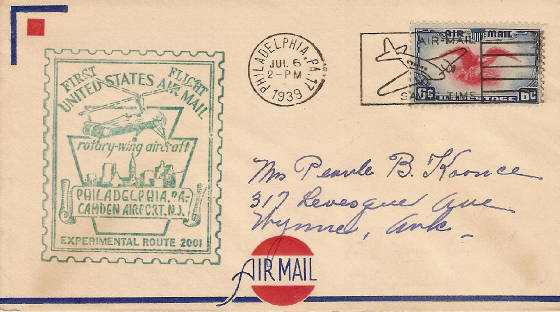 FIRST FLIGHT
UNITED STATES AIR MAIL
rotary-wing aircraft
PHILADELPHIA, PA.-
CAMDEN AIRPORT, N.J.
EXPERIMENTAL ROUTE 2001
PHILADELPHIA, PA. 17
JUL 6
2-PM
1939
AIR-MAIL
TIME
AIR MAIL
6¢ 6¢
317 Levesque Ave
Wynne, Ark.
AIR MAIL